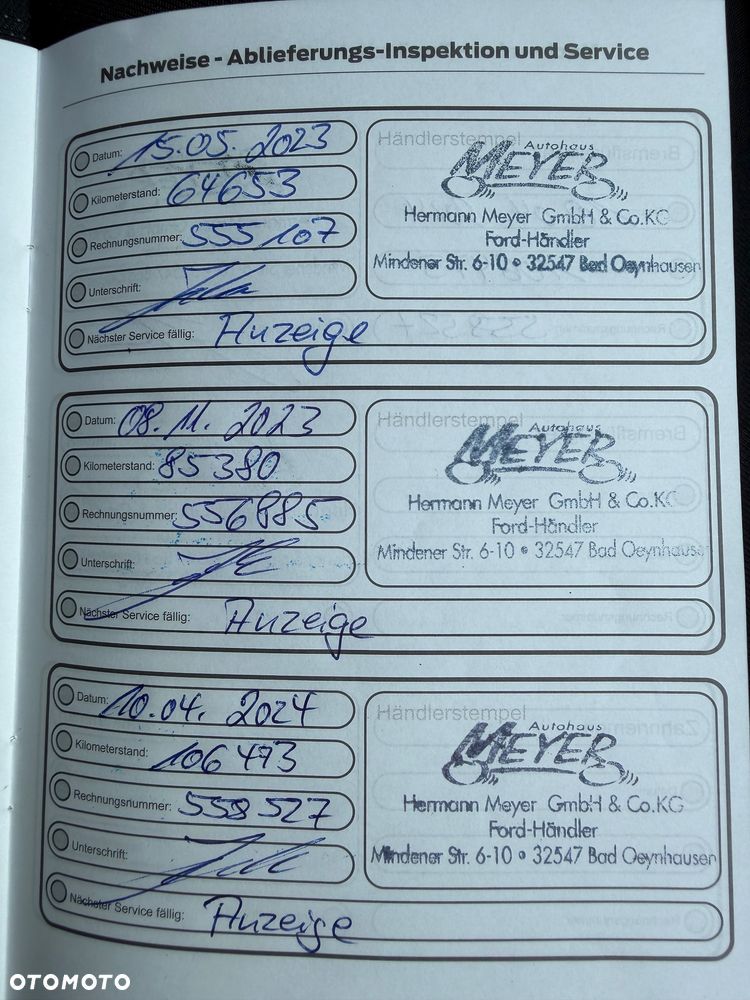 Nachweise - Ablieferungs-Inspektion und Service
Datum: 15.05.2023
Kilometerstand: 64653
Rechnungsnummer: 555107
Unterschrift:
Nächster Service fällig: Anzeige
Händlerstempel
Autohaus
MEYER
Hermann Meyer GmbH & Co.KG
Ford-Händler
Mindener Str. 6-10 • 32547 Bad Oeynhausen
Datum: 08.11.2023
Kilometerstand: 85380
Rechnungsnummer: 556885
Unterschrift:
Nächster Service fällig: Anzeige
Händlerstempel
Autohaus
MEYER
Hermann Meyer GmbH & Co.KG
Ford-Händler
Mindener Str. 6-10 • 32547 Bad Oeynhausen
Datum: 10.04.2024
Kilometerstand: 106473
Rechnungsnummer: 558527
Unterschrift:
Nächster Service fällig: Anzeige
Händlerstempel
Autohaus
MEYER
Hermann Meyer GmbH & Co.KG
Ford-Händler
Mindener Str. 6-10 • 32547 Bad Oeynhausen
OTOMOTO